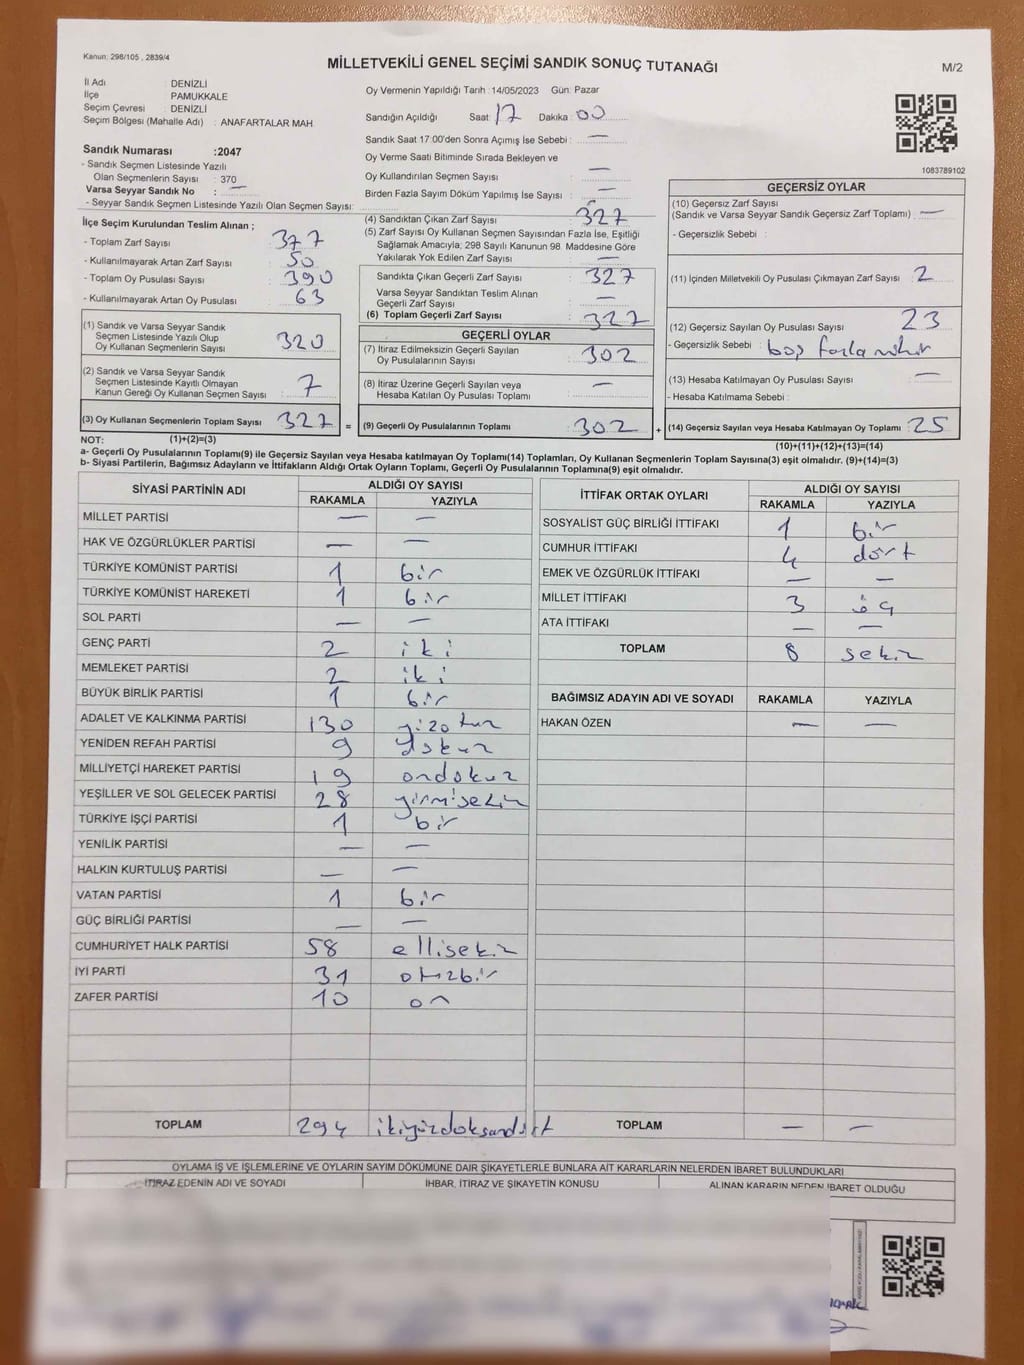 Kanun: 298/105 , 2839/4
MİLLETVEKİLİ GENEL SEÇİMİ SANDIK SONUÇ TUTANAĞI
M/2
İl Adı : DENİZLİ
İlçe : PAMUKKALE
Seçim Çevresi : DENİZLİ
Seçim Bölgesi (Mahalle Adı) : ANAFARTALAR MAH
Sandık Numarası :2047
- Sandık Seçmen Listesinde Yazılı
Olan Seçmenlerin Sayısı : 370
Varsa Seyyar Sandık No : —
- Seyyar Sandık Seçmen Listesinde Yazılı Olan Seçmen Sayısı:
Oy Vermenin Yapıldığı Tarih :14/05/2023 Gün: Pazar
Sandığın Açıldığı Saat: 17 Dakika: 00
Sandık Saat 17:00'den Sonra Açımış İse Sebebi : —
Oy Verme Saati Bitiminde Sırada Bekleyen ve
Oy Kullandırılan Seçmen Sayısı : —
Birden Fazla Sayım Döküm Yapılmış İse Sayısı : —
1083789102
İlçe Seçim Kurulundan Teslim Alınan ;
- Toplam Zarf Sayısı : 377
- Kullanılmayarak Artan Zarf Sayısı : 50
- Toplam Oy Pusulası Sayısı : 390
- Kullanılmayarak Artan Oy Pusulası : 63
(1) Sandık ve Varsa Seyyar Sandık
Seçmen Listesinde Yazılı Olup
Oy Kullanan Seçmenlerin Sayısı : 320
(2) Sandık ve Varsa Seyyar Sandık
Seçmen Listesinde Kayıtlı Olmayan
Kanun Gereği Oy Kullanan Seçmen Sayısı : 7
(3) Oy Kullanan Seçmenlerin Toplam Sayısı : 327
(4) Sandıktan Çıkan Zarf Sayısı : 327
(5) Zarf Sayısı Oy Kullanan Seçmen Sayısından Fazla İse, Eşitliği
Sağlamak Amacıyla; 298 Sayılı Kanunun 98. Maddesine Göre
Yakılarak Yok Edilen Zarf Sayısı : —
Sandıkta Çıkan Geçerli Zarf Sayısı : 327
Varsa Seyyar Sandıktan Teslim Alınan
Geçerli Zarf Sayısı : —
(6) Toplam Geçerli Zarf Sayısı : 327
GEÇERLİ OYLAR
(7) İtiraz Edilmeksizin Geçerli Sayılan
Oy Pusulalarının Sayısı : 302
(8) İtiraz Üzerine Geçerli Sayılan veya
Hesaba Katılan Oy Pusulası Toplamı : —
= (9) Geçerli Oy Pusulalarının Toplamı : 302
GEÇERSİZ OYLAR
(10) Geçersiz Zarf Sayısı
(Sandık ve Varsa Seyyar Sandık Geçersiz Zarf Toplamı) : —
- Geçersizlik Sebebi :
(11) İçinden Milletvekili Oy Pusulası Çıkmayan Zarf Sayısı : 2
(12) Geçersiz Sayılan Oy Pusulası Sayısı : 23
- Geçersizlik Sebebi : boş fazla mühür
(13) Hesaba Katılmayan Oy Pusulası Sayısı : —
- Hesaba Katılmama Sebebi :
+ (14) Geçersiz Sayılan veya Hesaba Katılmayan Oy Toplamı : 25
NOT: (1)+(2)=(3) (10)+(11)+(12)+(13)=(14)
a- Geçerli Oy Pusulaları Toplamı(9) ile Geçersiz Sayılan veya Hesaba katılmayan Oy Toplamı(14) Toplamları, Oy Kullanan Seçmenlerin Toplam Sayısına(3) eşit olmalıdır. (9)+(14)=(3)
b- Siyasi Partilerin, Bağımsız Adayların ve İttifakların Aldığı Ortak Oyların Toplamı, Geçerli Oy Pusulalarının Toplamına(9) eşit olmalıdır.
SİYASİ PARTİNİN ADI ALDIĞI OY SAYISI
RAKAMLA YAZIYLA
MİLLET PARTİSİ — —
HAK VE ÖZGÜRLÜKLER PARTİSİ — —
TÜRKİYE KOMÜNİST PARTİSİ 1 bir
TÜRKİYE KOMÜNİST HAREKETİ 1 bir
SOL PARTİ — —
GENÇ PARTİ 2 iki
MEMLEKET PARTİSİ 2 iki
BÜYÜK BİRLİK PARTİSİ 1 bir
ADALET VE KALKINMA PARTİSİ 130
YENİDEN REFAH PARTİSİ 9 dokuz
MİLLİYETÇİ HAREKET PARTİSİ 19 ondokuz
YEŞİLLER VE SOL GELECEK PARTİSİ 28 yirmisekiz
TÜRKİYE İŞÇİ PARTİSİ 1 bir
YENİLİK PARTİSİ — —
HALKIN KURTULUŞ PARTİSİ — —
VATAN PARTİSİ 1 bir
GÜÇ BİRLİĞİ PARTİSİ — —
CUMHURİYET HALK PARTİSİ 58 ellisekiz
İYİ PARTİ 31 otuzbir
ZAFER PARTİSİ 10 on
TOPLAM 294 ikiyüzdoksandört
İTTİFAK ORTAK OYLARI ALDIĞI OY SAYISI
RAKAMLA YAZIYLA
SOSYALİST GÜÇ BİRLİĞİ İTTİFAKI 1 bir
CUMHUR İTTİFAKI 4 dört
EMEK VE ÖZGÜRLÜK İTTİFAKI — —
MİLLET İTTİFAKI 3 üç
ATA İTTİFAKI — —
TOPLAM 8 sekiz
BAĞIMSIZ ADAYIN ADI VE SOYADI RAKAMLA YAZIYLA
HAKAN ÖZEN — —
TOPLAM — —
OYLAMA İŞ VE İŞLEMLERİNE VE OYLARIN SAYIM DÖKÜMÜNE DAİR ŞİKAYETLERLE BUNLARA AİT KARARLARIN NELERDEN İBARET BULUNDUKLARI
İTİRAZ EDENİN ADI VE SOYADI İHBAR, İTİRAZ VE ŞİKAYETİN KONUSU ALINAN KARARIN NEDEN İBARET OLDUĞU